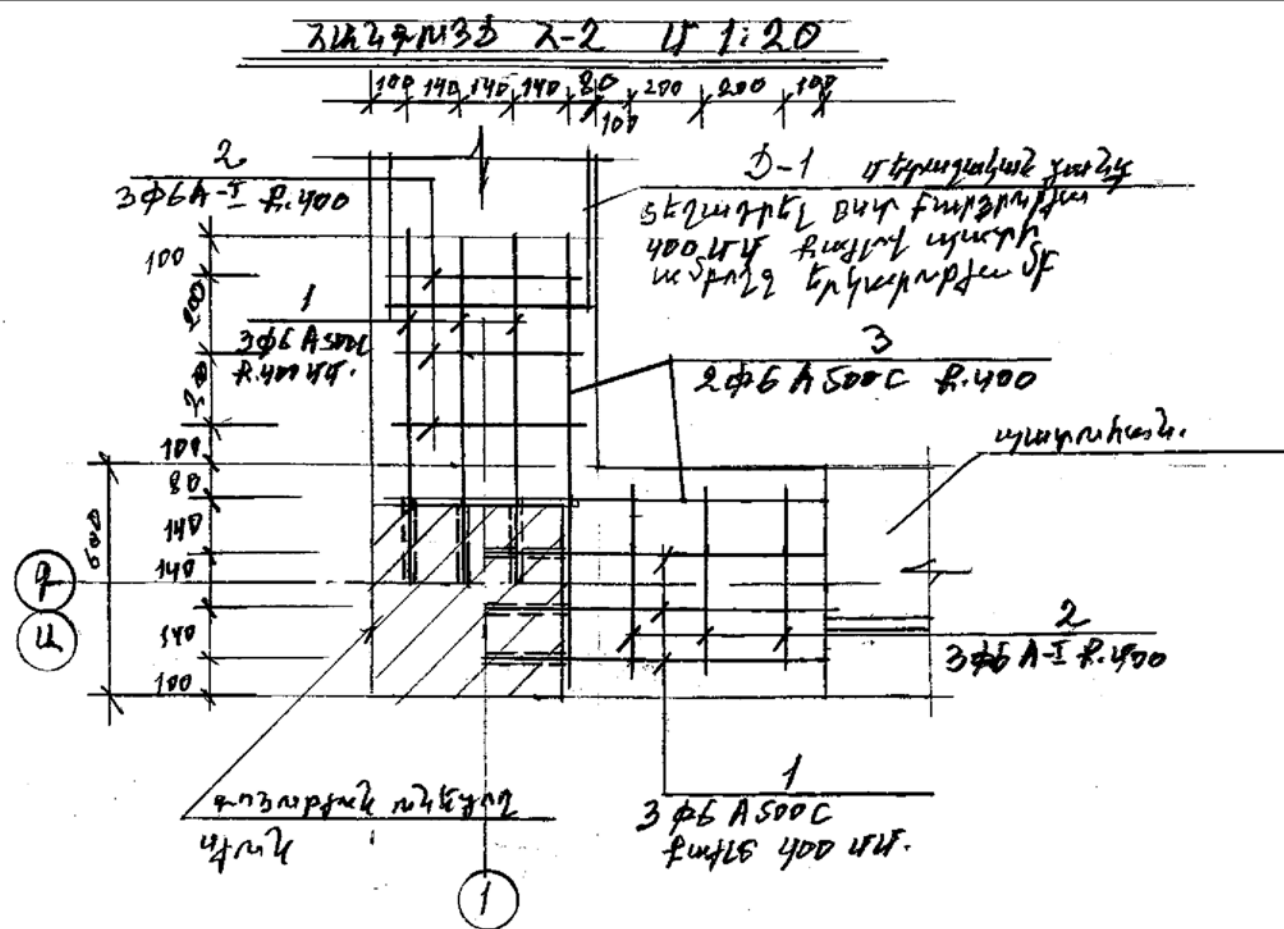 ՀԱՆԳՈՒՅՑ 2-2 Մ 1:20
100 140 140 140 80 200 200 100
100
2
3ϕ6 A-I Ք.400
Ց-1 մետաղական ցանց
տեղադրել ըստ բարձրության
400 մմ քայլով պատի
ամբողջ երկարությամբ
100
200
200
100
80
140
140
140
100
600
1
3ϕ6 A500C
Ք.400 մմ.
3
2ϕ6 A500C Ք.400
պատուհան.
Գ
Ա
2
3ϕ6 A-I Ք.400
գոյություն ունեցող
սյուն
1
3ϕ6 A500C
քայլը 400 մմ.
1